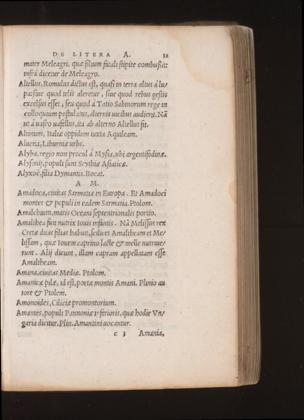 DE LITERA A.
mater Meleagri, quæ filium fatali stipite combussit:
infra dicetur de Meleagro.
Altellus, Romulus dictus est, quasi in terra altus à lu-
pa siue quod telis aleretur, siue quod rebus gestis
excelsus esset, seu quod à Tatio Sabinorum rege in
colloquium postulatus, alternis uicibus audierit. Nā
ut à uafro uafellus, ita ab alterno Altellus fit.
Altinum, Italiæ oppidum iuxta Aquileam.
Aluena, Liburniæ urbs.
Alyba, regio non procul à Mysia, ubi argentifodinæ.
populi sunt Scythiæ Asiaticæ.
Alyxoë, filia Dymantis. Bocat.
A M.
Amadoca, ciuitas Sarmatiæ in Europa. Et Amadoci
montes & populi in eadem Sarmatia. Ptolom.
Amalchium, maris Oceani septentrionalis portio.
Amalthea, fuit nutrix Iouis infantis. Nā Melissus rex
Cretæ duas filias habuit, scilicet Amaltheam et Me-
lissam, quæ Iouem caprino lacte & melle nutrie-
runt. Alij dicunt, illam capram appellatam esse
Amaltheam.
Amana, ciuitas Mediæ. Ptolom.
Amanicæ pilæ, id est, portæ montis Amani. Plinio au
tore & Ptolem.
Amonoides, Ciliciæ promontorium.
Amantes, populi Pannoniæ inferioris, quæ hodie Vn-
garia dicitur. Plin. Amantini uocantur.
c 3 Amania,